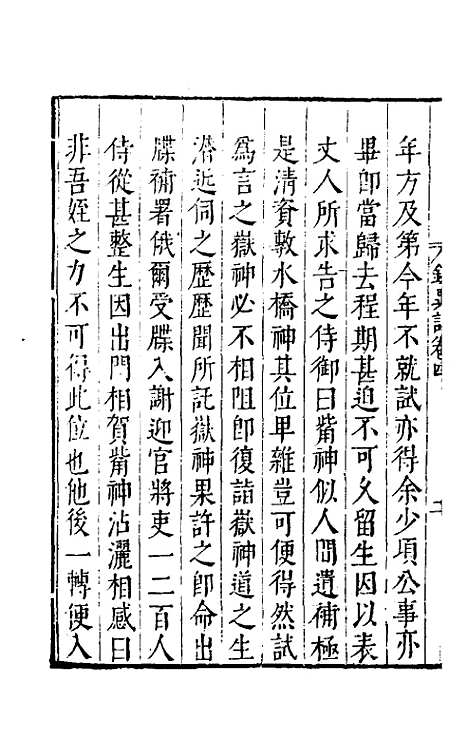 年方及第今年不就試亦得余少項公事亦
畢即當歸去程期甚迫不可久留生因以表
丈人所求告之侍御曰觜神似人間遺術極
是清資敷水橋神其位卑雜豈可便得然試
爲言之嶽神必不相阻卽復詣嶽神道之生
潛近伺之歷歷聞所託嶽神果許之卽命出
牒補署俄爾受牒入謝迎官將吏一二百人
侍從甚整生因出門相賀觜神沾灑相感曰
非吾姪之力不可得此位也他後一轉便入
錄異記卷四